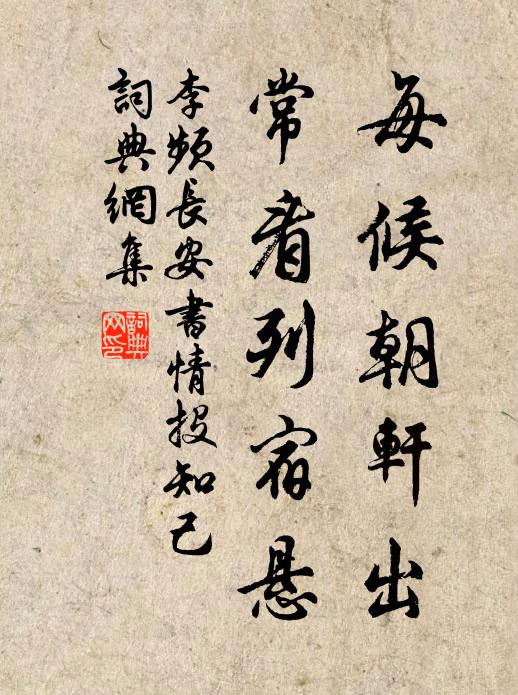 每候朝軒出
常看列宿悬
李频長安書情投知己
詞典網集
詞典网印